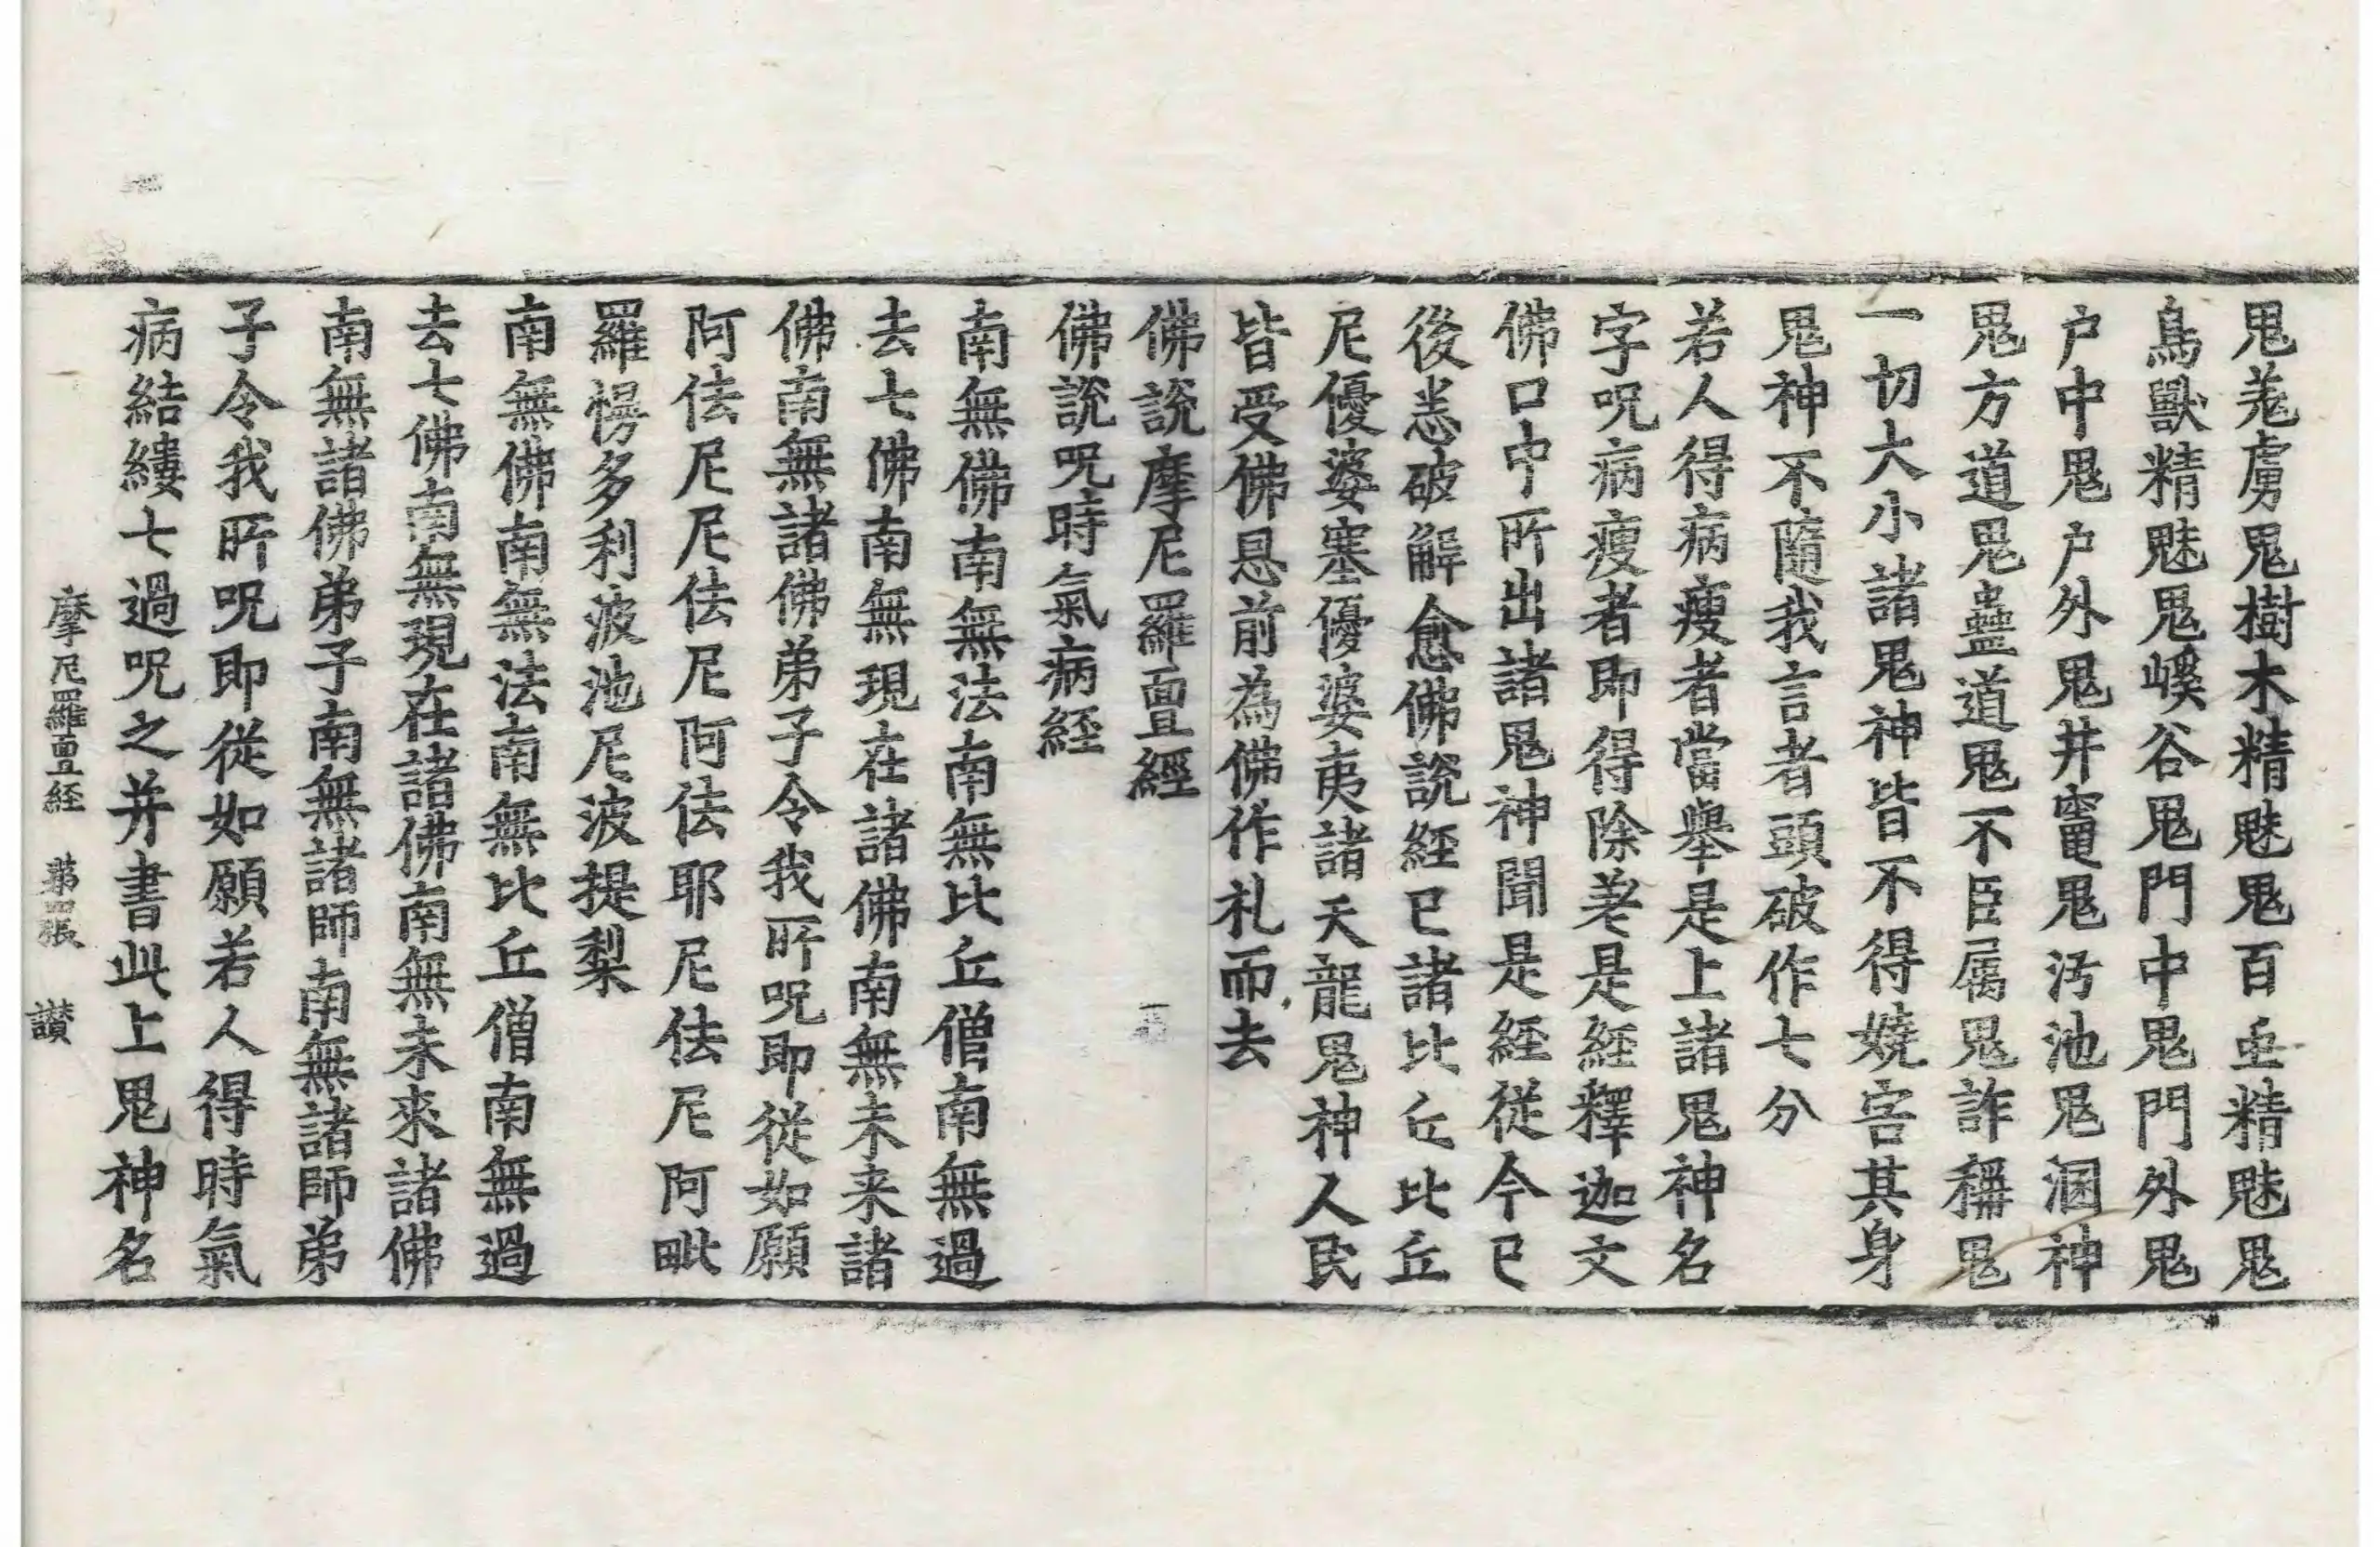 鬼羗虜鬼樹木精魅鬼百䖝精魅鬼
鳥獸精魅鬼嵠谷鬼門中鬼門外鬼
户中鬼户外鬼井竃鬼汚池鬼溷神
鬼方道鬼蠱道鬼不臣属鬼詐稱鬼
一切大小諸鬼神皆不得嬈害其身
鬼神不隨我言者頭破作七分
若人得病瘦者當舉是上諸鬼神名
字呪病瘦者即得除差是経釋迦文
佛口中所出諸鬼神聞是経從今已
後悉破解愈佛說経已諸比丘比丘
尼優婆塞優婆夷諸天龍鬼神人民
皆受佛恩前為佛作礼而去
佛說摩尼羅亶經
佛說呪時氣病経
南無佛南無法南無比丘僧南無過
去七佛南無現在諸佛南無未来諸
佛南無諸佛弟子令我所呪即從如願
阿佉尼尼佉尼阿佉耶尼佉尼阿毗
羅慢多利波池尼波提梨
南無佛南無法南無比丘僧南無過
去七佛南無現在諸佛南無未來諸佛
南無諸佛弟子南無諸師南無諸師弟
子令我所呪即從如願若人得時氣
病結縷七過呪之并書此上鬼神名
摩尼羅亶経 苐四張 讃